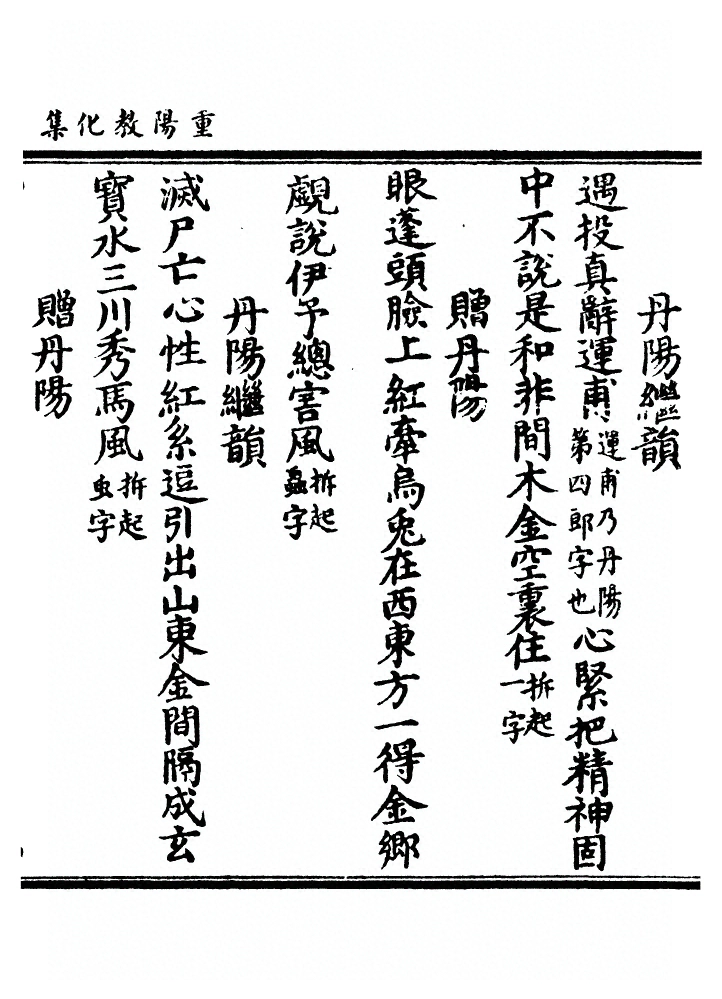 重陽教化集
丹陽繼韻
遇投真辭運甫運甫乃丹陽第四郎字也心緊把精神固
中不說是和非間木金空裏住拆起一字
贈丹陽
眼蓬頭臉上紅牽烏兎在西東方一得金鄉
覷說伊予總害風拆起蝨字
丹陽繼韻
滅尸亡心性紅系逗引出山東金間隔成玄
寶水三川秀馬風拆起虫字
贈丹陽